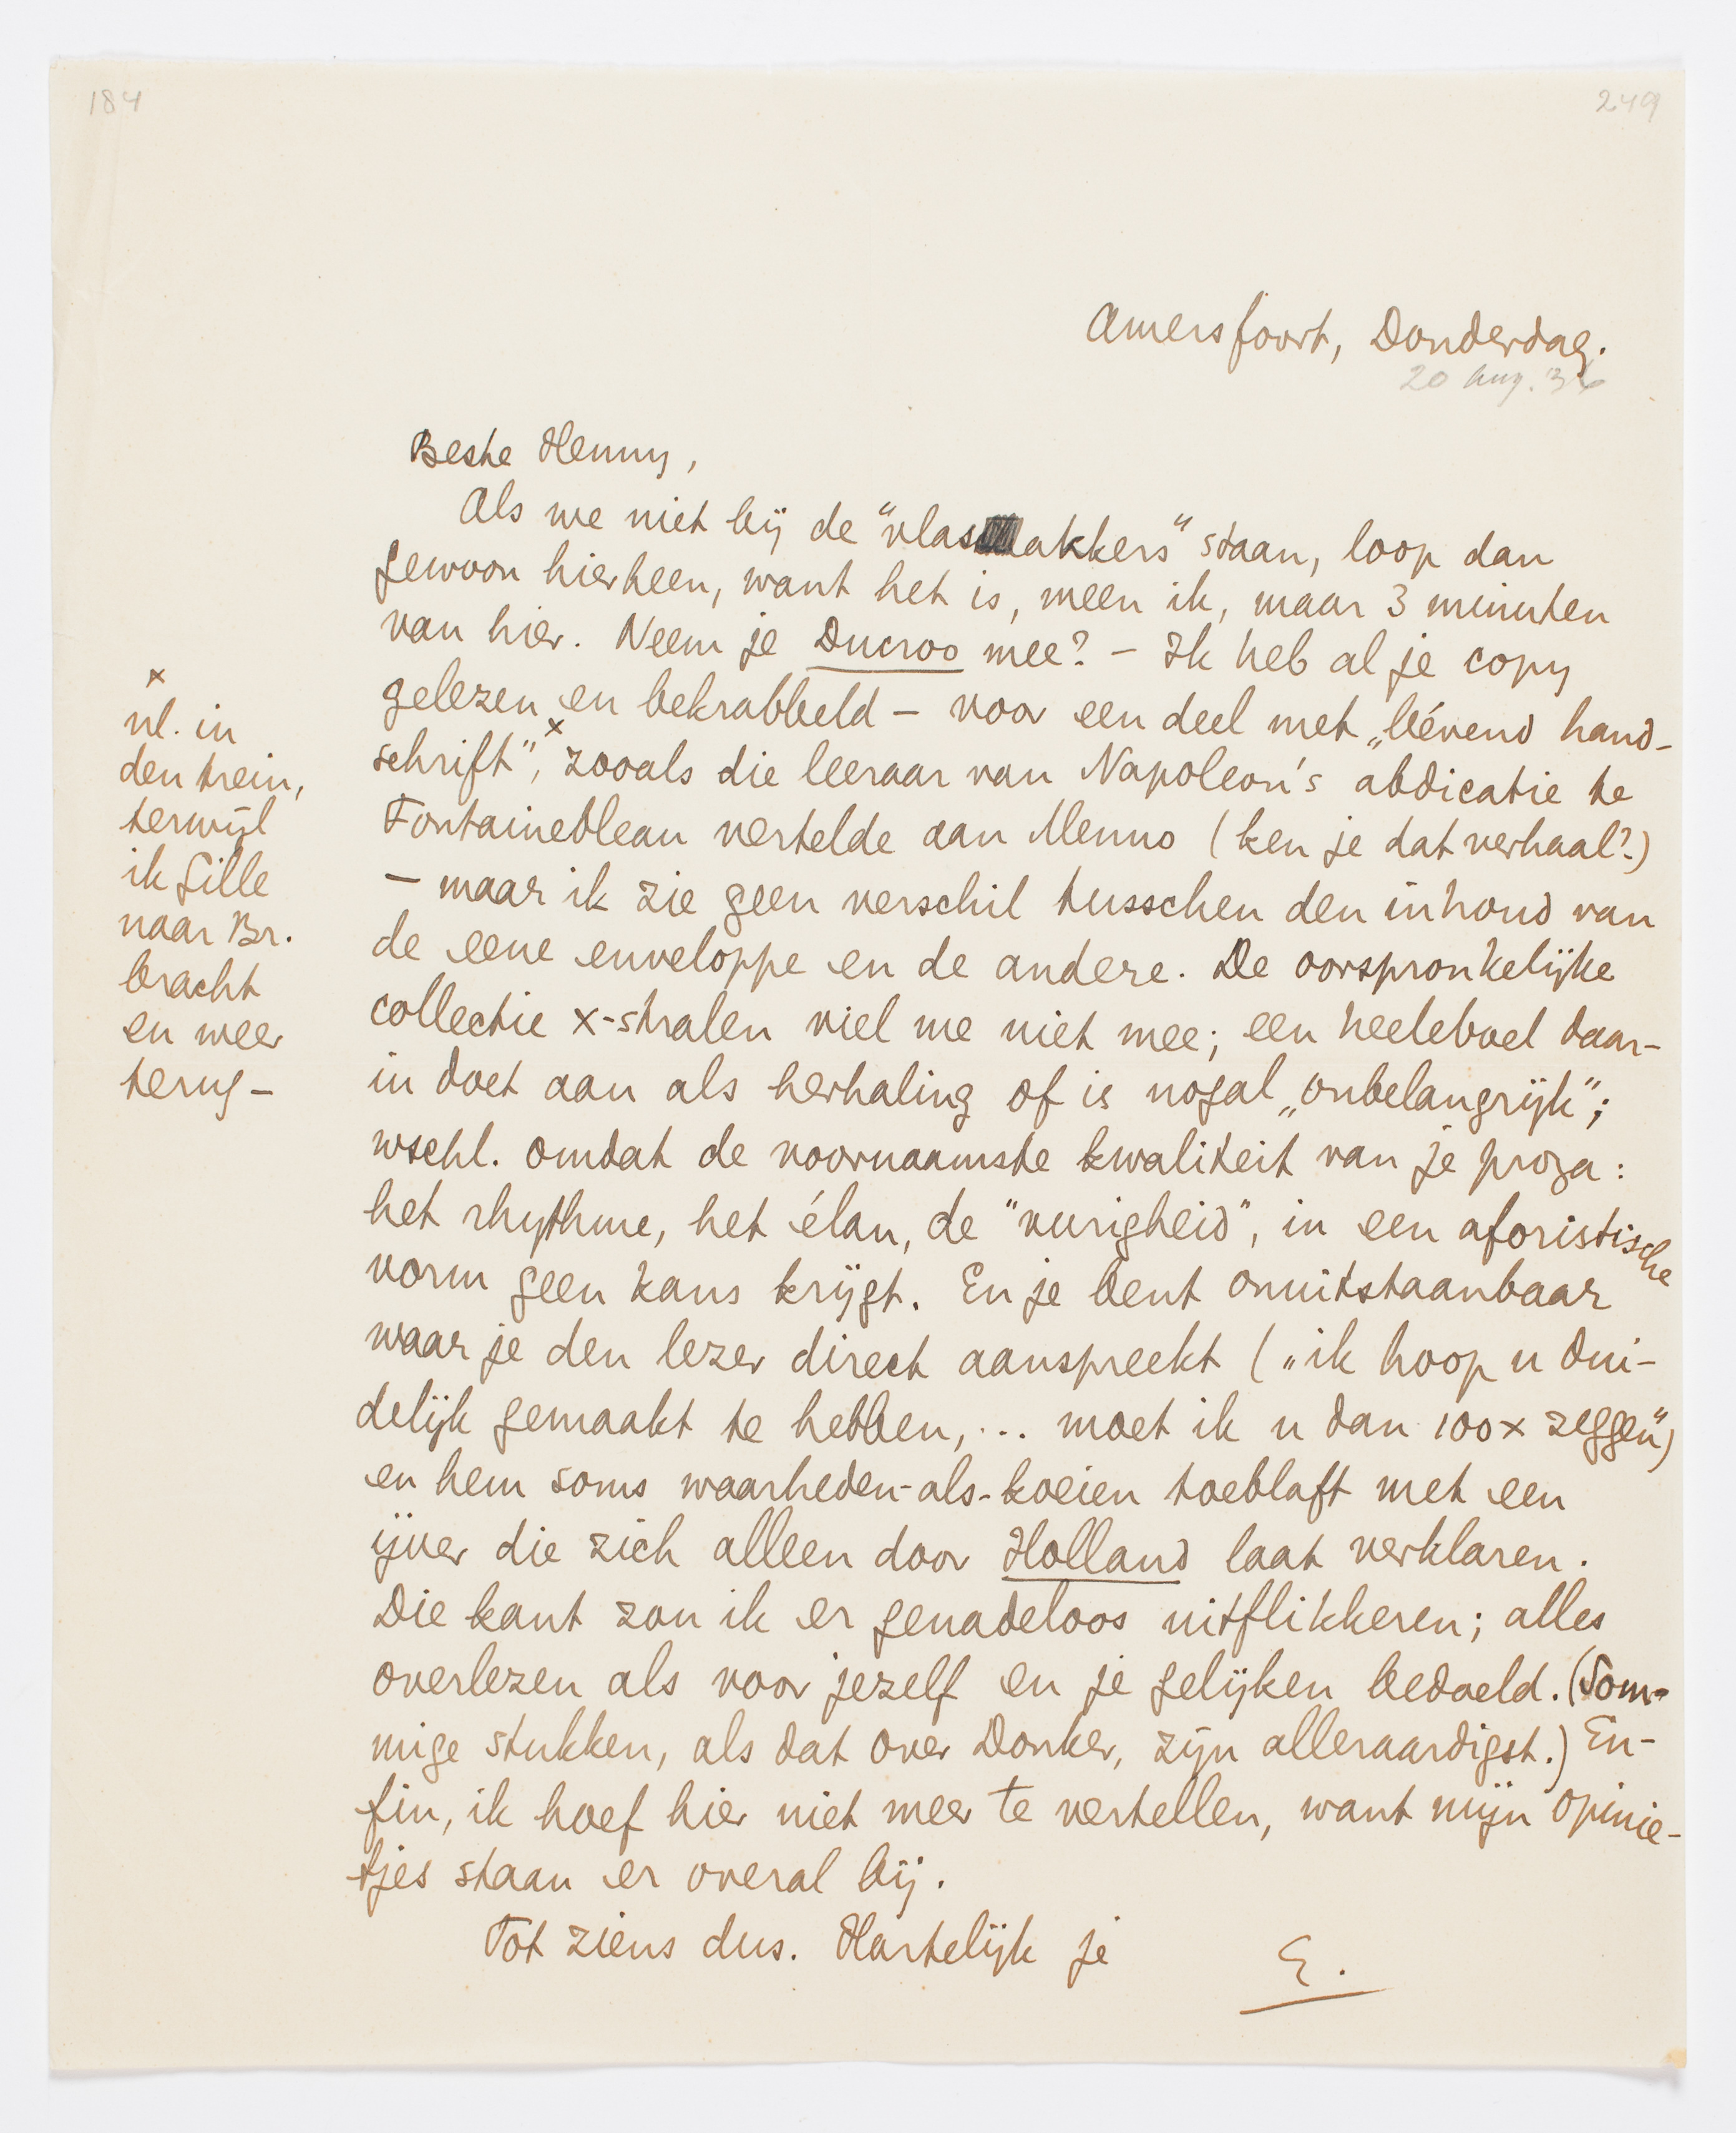 184
249
Amersfoort, Donderdag.
20 Aug. '36
Beste Henny,
Als we niet bij de "vlasakkers" staan, loop dan
gewoon hierheen, want het is, meen ik, maar 3 minuten
van hier. Neem je Ducroo mee? – Ik heb al je copy
gelezen en bekrabbeld – voor een deel met „béévend hand-
schrift",x zooals die leeraar van Napoleon's abdicatie te
Fontainebleau vertelde aan Menno (ken je dat verhaal?)
– maar ik zie geen verschil tusschen den inhoud van
de eene enveloppe en de andere. De oorspronkelijke
collectie x-stralen viel me niet mee; een heeleboel daar-
in doet aan als herhaling of is nogal „onbelangrijk";
wschl. omdat de voornaamste kwaliteit van je proza:
het rhythme, het élan, de "vurigheid", in een aforistische
vorm geen kans krijgt. En je bent onuitstaanbaar
waar je den lezer direct aanspreekt („ik hoop u dui-
delijk gemaakt te hebben, ... moet ik u dan 100x zeggen")
en hem soms waarheden-als-koeien toeblaft met een
ijver die zich alleen door Holland laat verklaren.
Die kant zou ik er genadeloos uitflikkeren; alles
overlezen als voor jezelf en je gelijken bedoeld. (Som-
mige stukken, als dat over Donker, zijn alleraardigst.) En-
fin, ik hoef hier niet meer te vertellen, want mijn opinie-
tjes staan er overal bij.
Tot ziens dus. Hartelijk je
E.
x
nl. in
den trein,
terwijl
ik Gille
naar Br.
bracht
en weer
terug –